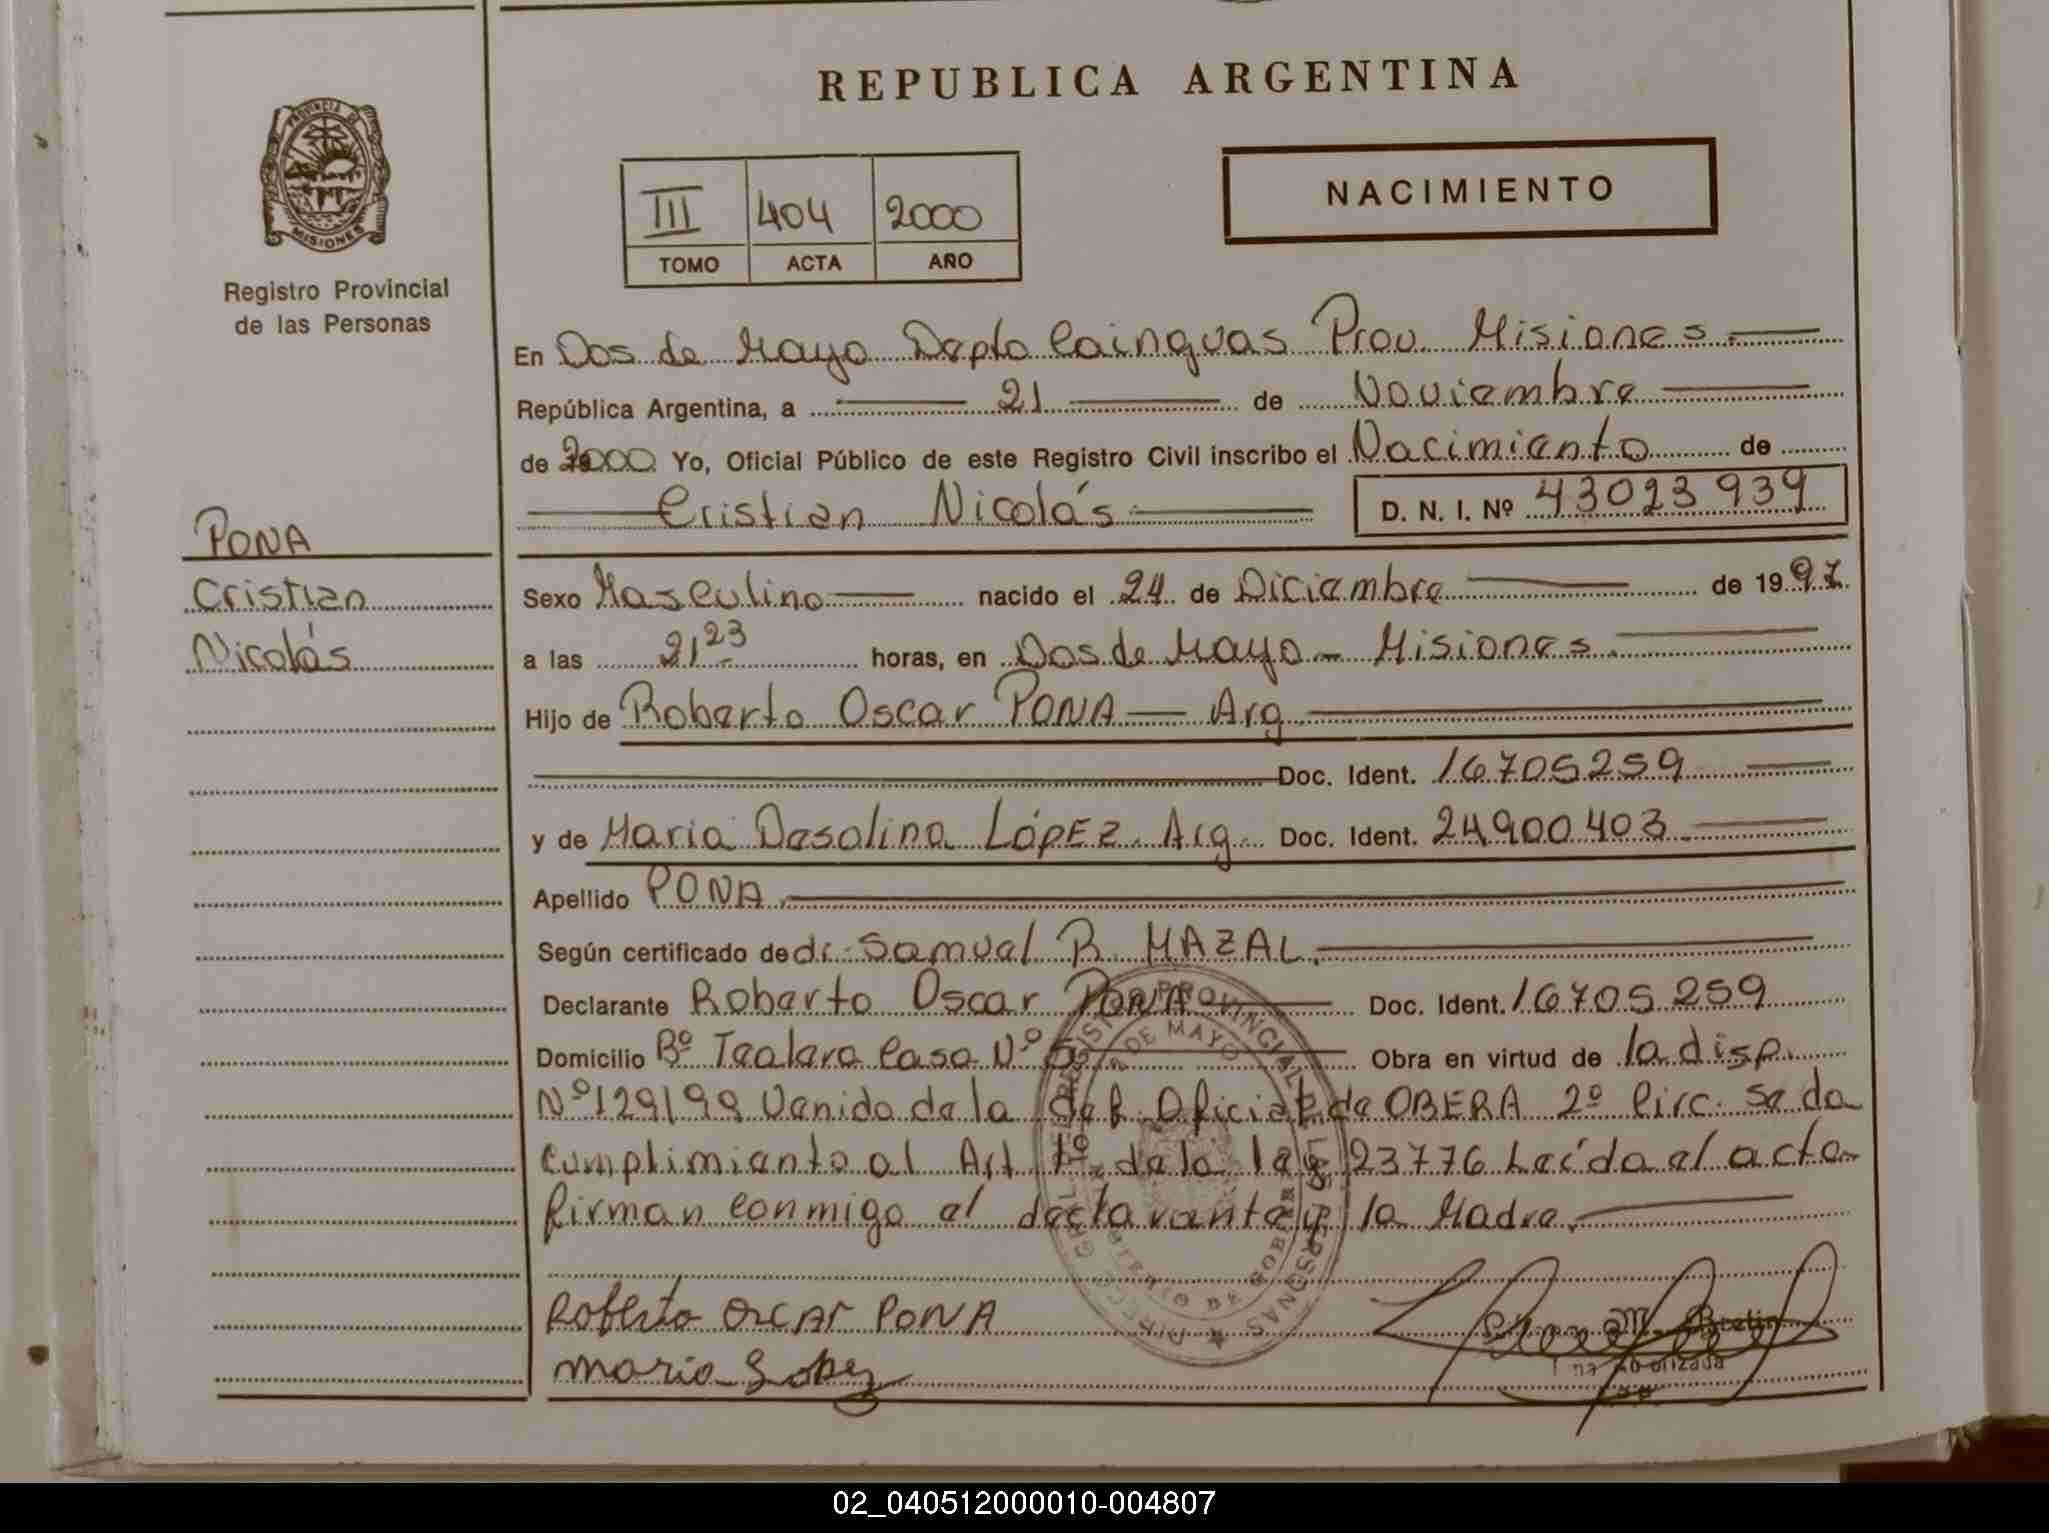 REPUBLICA ARGENTINA
PROVINCIA DE
MISIONES
Registro Provincial
de las Personas
III 404 2000
TOMO ACTA AÑO
NACIMIENTO
En Dos de Mayo Depto Cainguas Prov. Misiones
República Argentina, a 21 de Noviembre
de 2000 Yo, Oficial Público de este Registro Civil inscribo el Nacimiento de
Cristian Nicolás D. N. I. Nº 43023939
PONA
Cristian
Nicolás
Sexo Masculino nacido el 24 de Diciembre de 1997.
a las 21 23 horas, en Dos de Mayo - Misiones.
Hijo de Roberto Oscar PONA — Arg.
Doc. Ident. 16705259
y de Maria Desolina LÓPEZ. Arg. Doc. Ident. 24900403
Apellido PONA.
Según certificado de dr. Samuel R. MAZAL.
Declarante Roberto Oscar PONA Doc. Ident. 16705259
Domicilio Bº Tealero Casa Nº 5 Obra en virtud de la disp.
Nº 129/99 Venida de la def. Oficial de OBERA 2º Circ. Se da
cumplimiento al Art 1º de la ley 23776 Leída el acta
firman conmigo el declarante y la Madre.
Roberto Oscar PONA
Maria Lopez
02_040512000010-004807